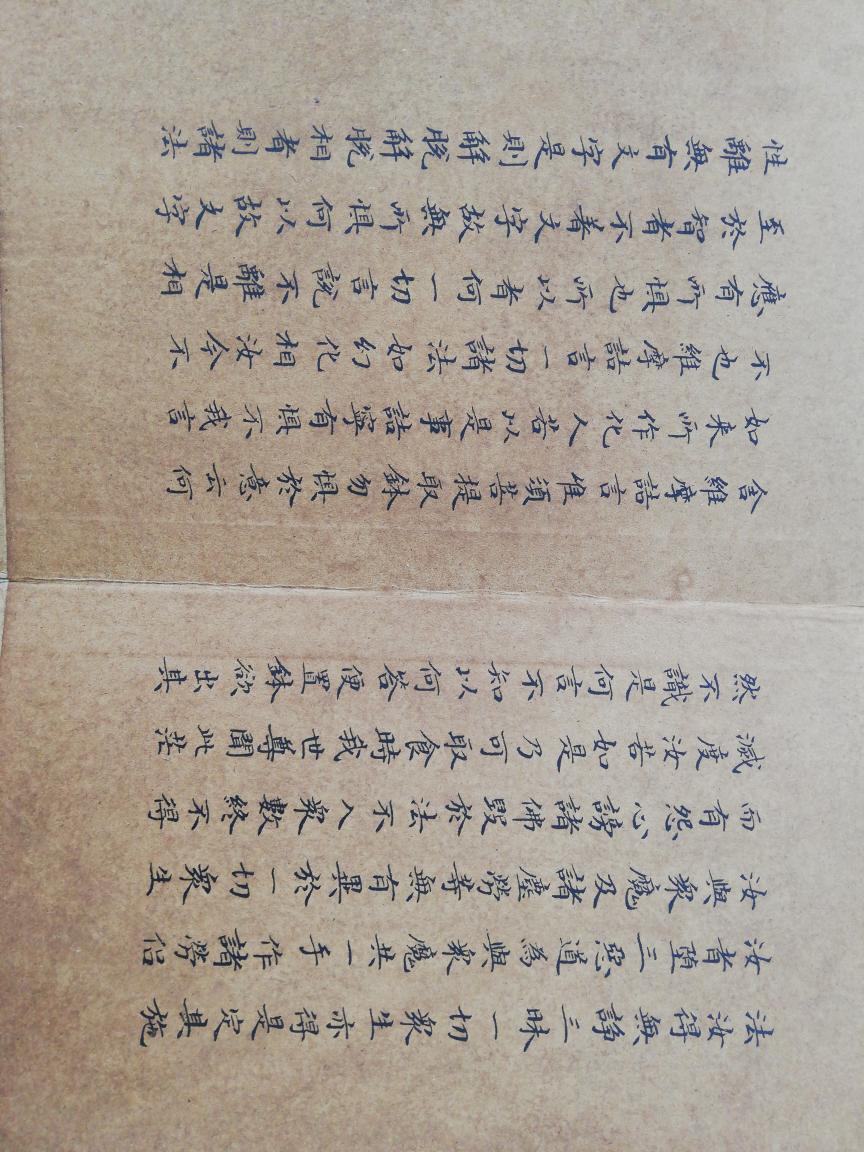 法汝得無諍三昧一切衆生亦得是定其施
汝者墮三惡道為與衆魔共一手作諸勞侶
汝與衆魔及諸塵勞等無有異於一切衆生
而有怨心謗諸佛毀於法不入衆數終不得
滅度汝若如是乃可取食時我世尊聞此茫
然不識是何言不知以何答便置鉢欲出其
舍維摩詰言唯須菩提取鉢勿懼於意云何
如来所作化人若以是事詰寧有懼不我言
不也維摩詰言一切諸法如幻化相汝今不
應有所懼也所以者何一切言說不離是相
至於智者不著文字故無所懼何以故文字
性離無有文字是則解脫解脫相者則諸法